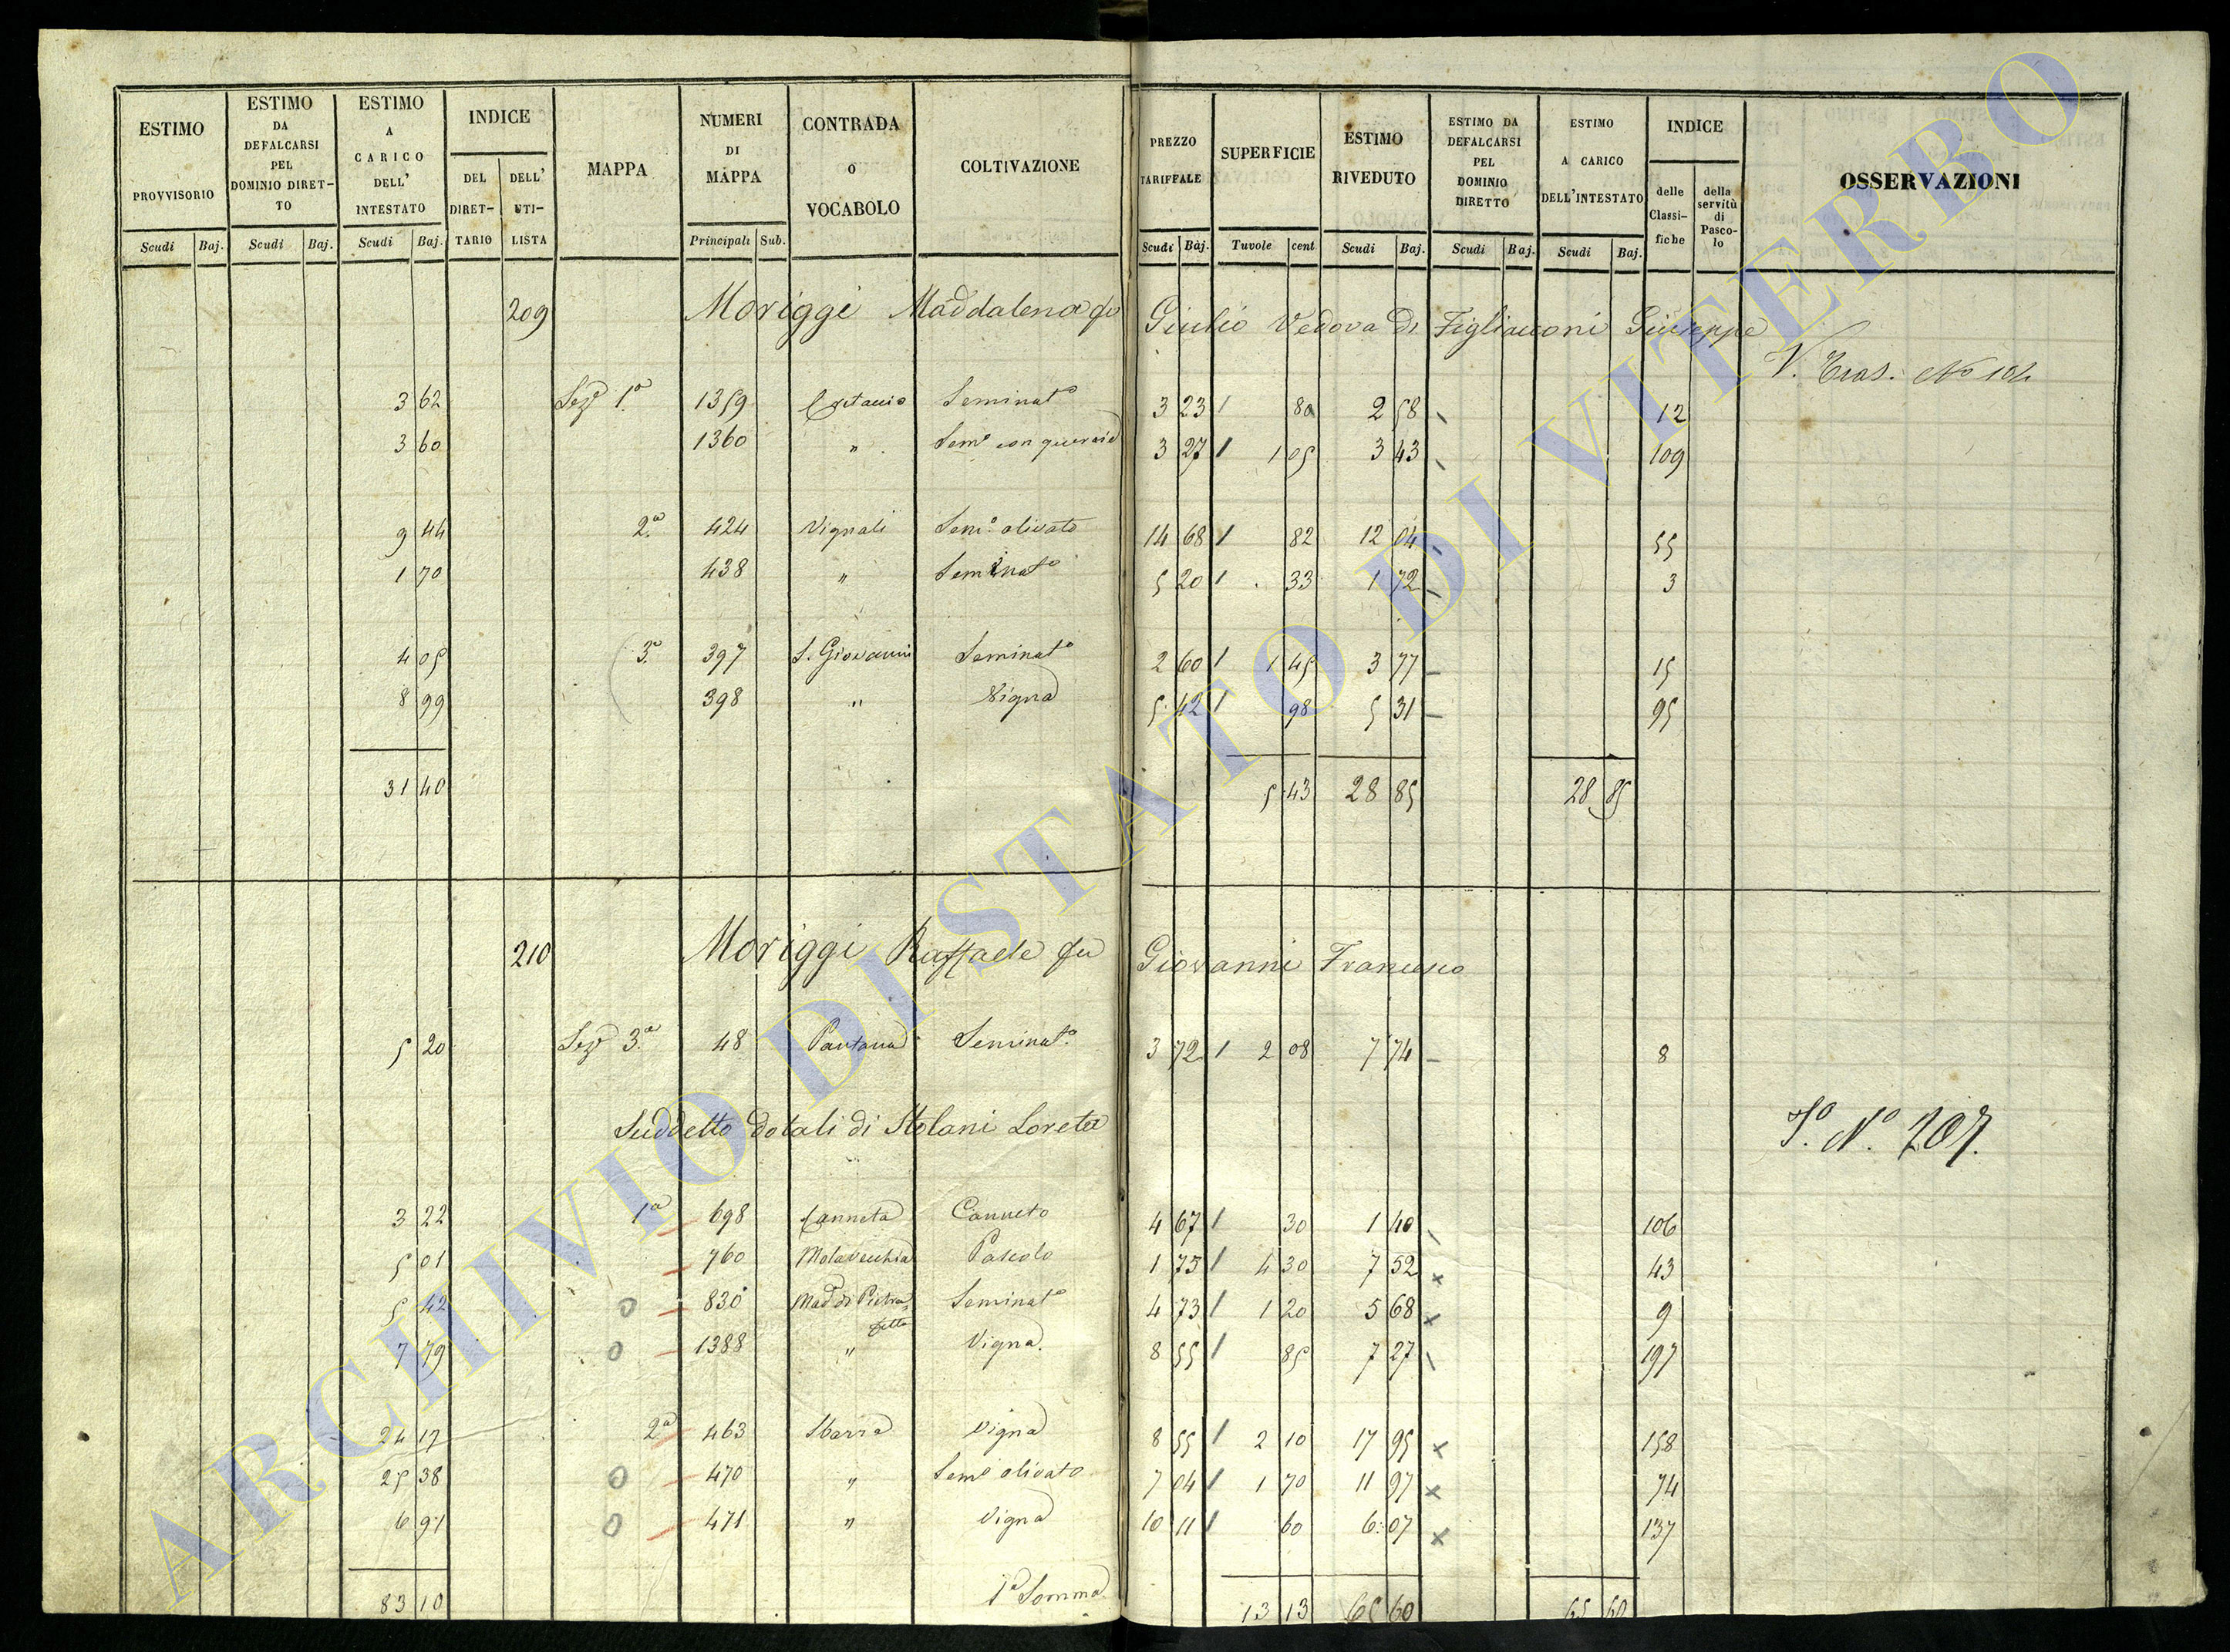 ESTIMO PROVVISORIO Scudi Baj.
ESTIMO DA DEFALCARSI PEL DOMINIO DIRET-TO Scudi Baj.
ESTIMO A CARICO DELL' INTESTATO Scudi Baj.
INDICE DEL DIRET-TARIO DELL' UTI-LISTA
MAPPA
NUMERI DI MAPPA Principali Sub.
CONTRADA O VOCABOLO
COLTIVAZIONE
PREZZO TARIFFALE Scudi Baj.
SUPERFICIE Tavole cent
ESTIMO RIVEDUTO Scudi Baj.
ESTIMO DA DEFALCARSI PEL DOMINIO DIRETTO Scudi Baj.
ESTIMO A CARICO DELL'INTESTATO Scudi Baj.
INDICE delle Classi-fiche della servitù di Pasco-lo
OSSERVAZIONI
209 Moriggi Maddalena fu Giulio Vedova di Figliacconi Giuseppe
V. Tras. No 104
3 62 Sez.e 1.a 1359 Seminat.o 3 23 / 80 2 58 12
3 60 1360 " Sem.o con quercie 3 27 / 1 05 3 43 109
9 44 2.a 424 Vignali Sem.o olivato 14 68 / 82 12 04 55
1 70 438 " Seminat.o 5 20 / 33 1 72 3
4 05 3.a 397 S. Giovanni Seminat.o 2 60 / 1 45 3 77 15
8 99 398 " Vigna 5 42 / 98 5 31 95
31 40 5 43 28 85 28 85
210 Moriggi Raffaele fu Giovanni Francesco
5 20 Sez.e 3.a 48 Pantana Seminat.o 3 72 / 2 08 7 74 8
Suddetto dotali di Stolani Loreta
S.o N.o 207.
3 22 1.a 698 Canneta Canneto 4 67 / 30 1 40 106
5 01 760 Molavecchia Pascolo 1 75 / 4 30 7 52 x 43
5 42 0 830 Mad di Pietra fitta Seminat.o 4 73 / 1 20 5 68 x 9
7 79 0 1388 " Vigna. 8 55 / 85 7 27 197
24 17 2.a 463 Sbarra Vigna 8 55 / 2 10 17 95 x 158
25 38 0 470 " Sem.o olivato 7 04 / 1 70 11 97 x 74
6 91 0 471 " Vigna 10 11 / 60 6 07 x 137
83 10 1.a Somma 13 13 65 60 65 60
ARCHIVIO DI STATO DI VITERBO